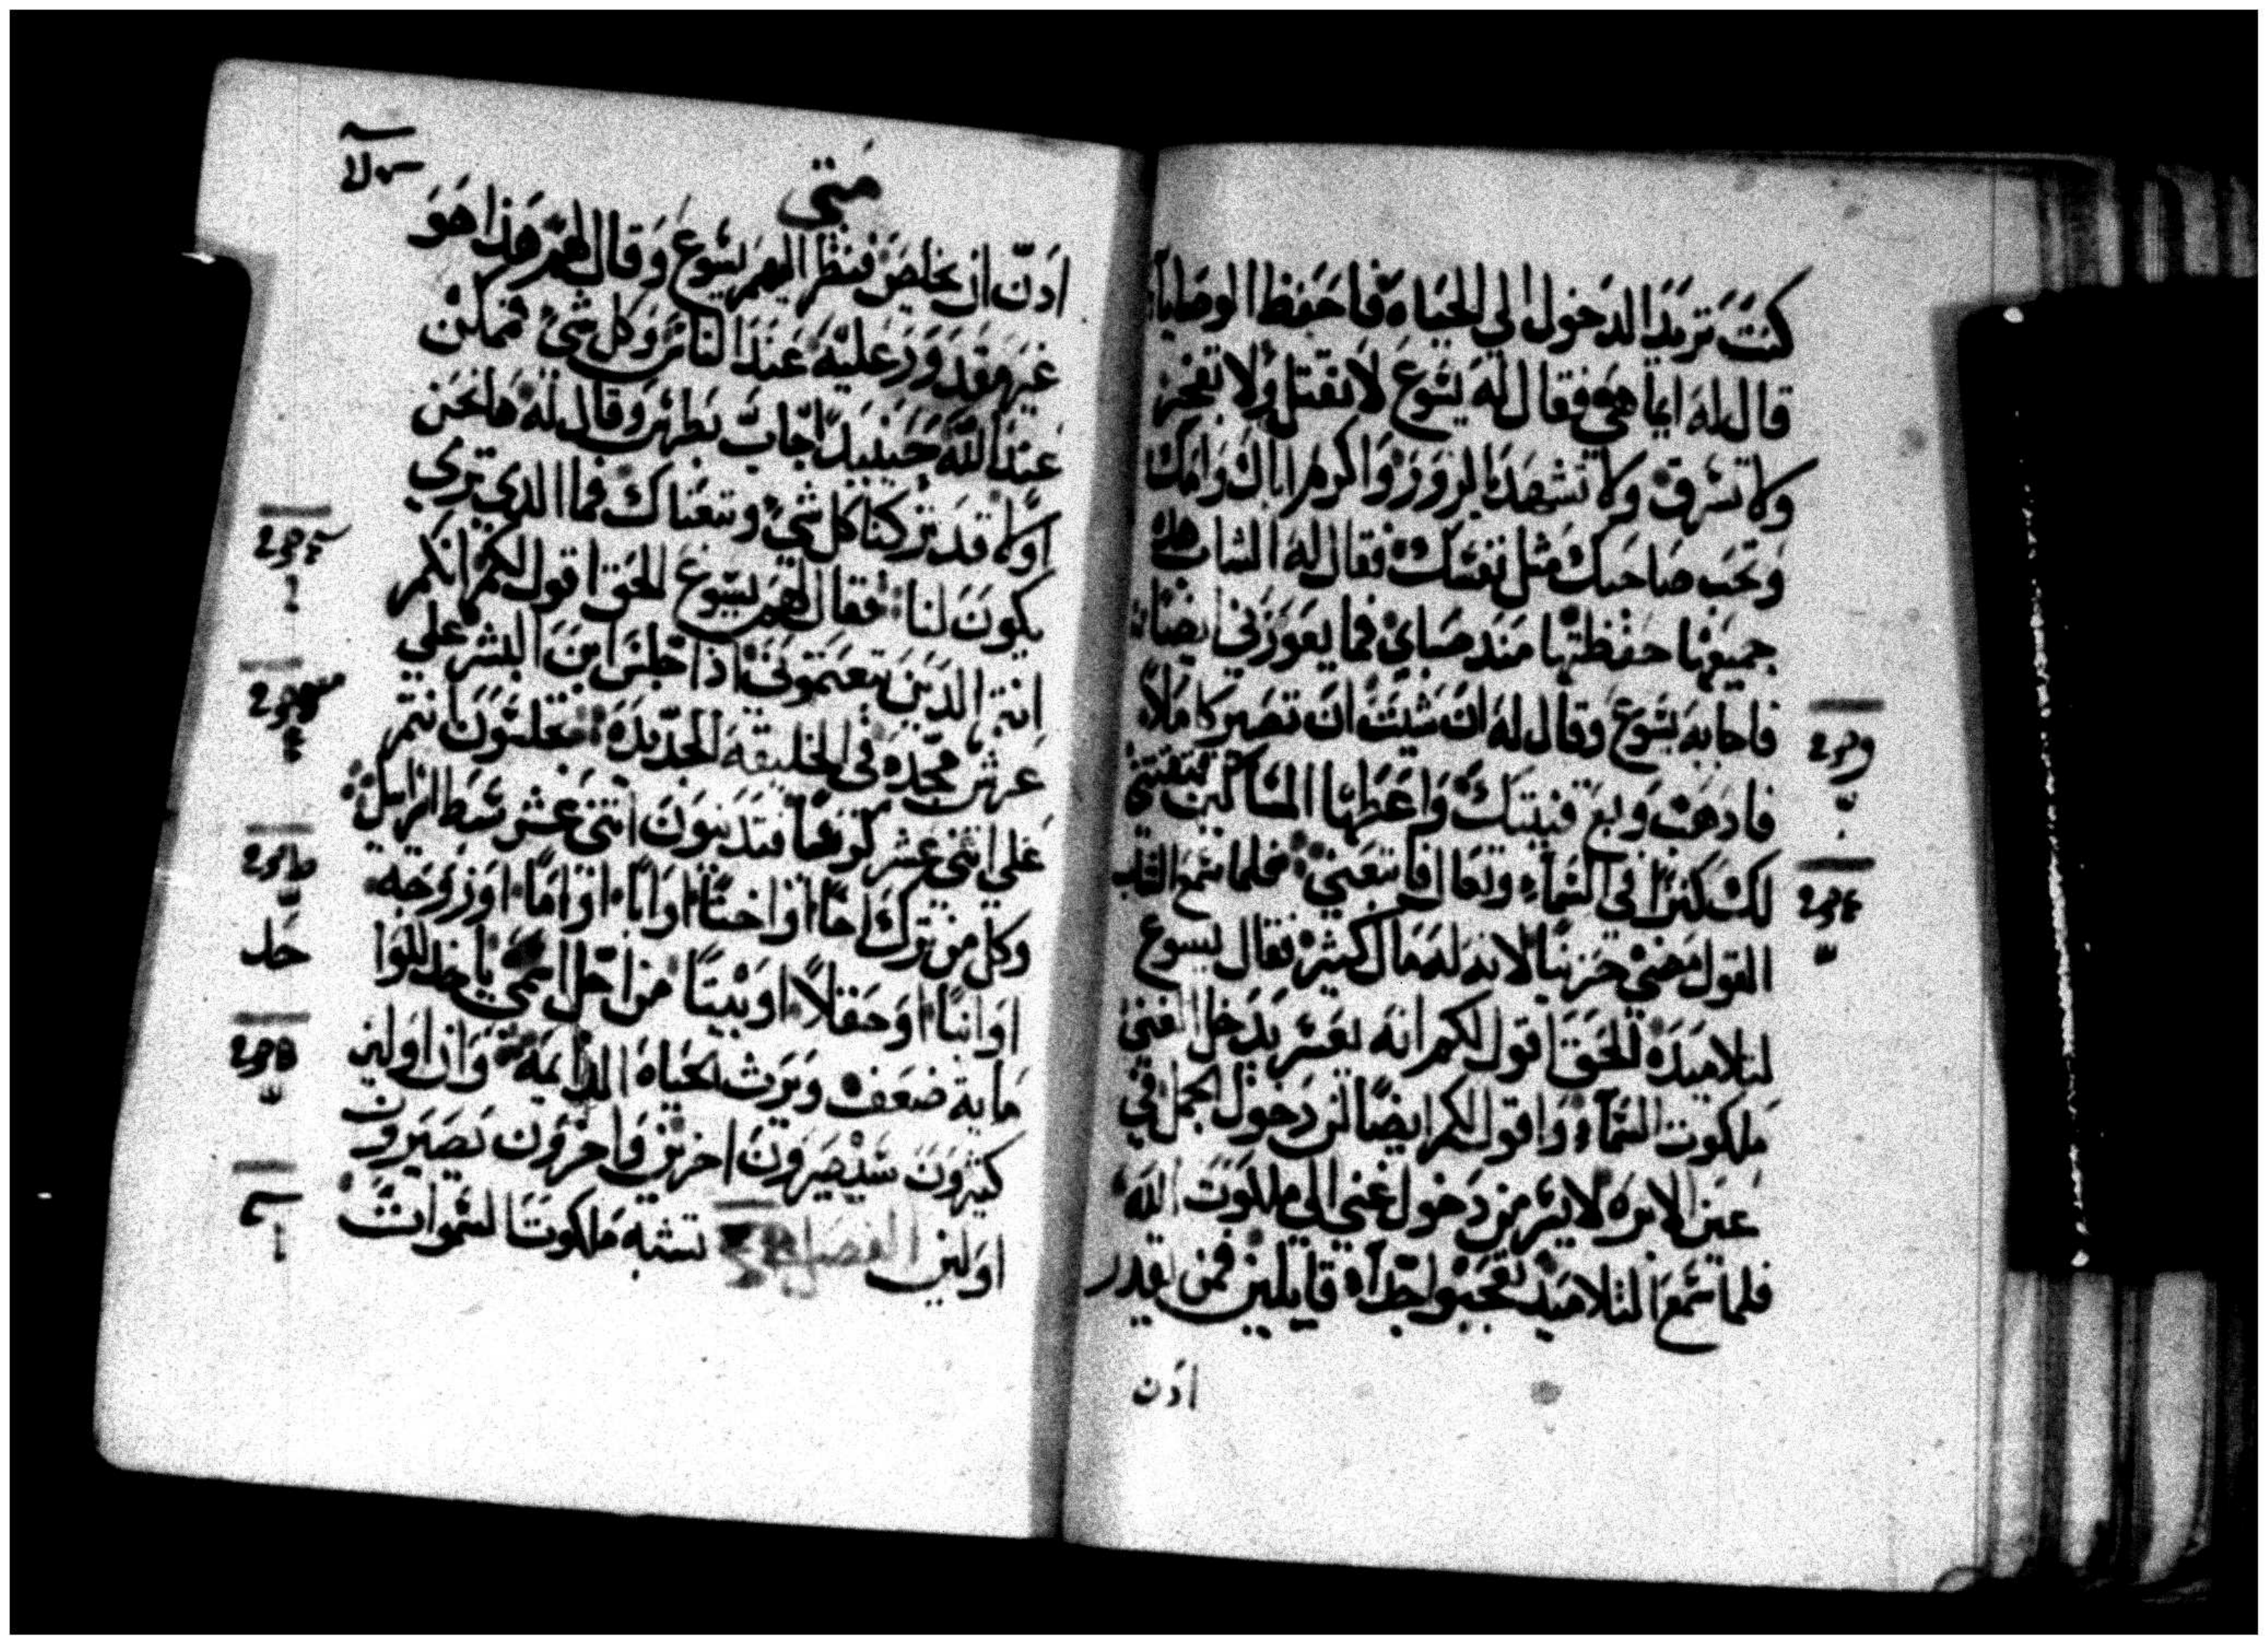 كنت تريد الدخول الي الحياه فاحفظ الوصايا
قال له ايما هي فقال له يسوع لا تقتل ولا تفجر
ولا تسرق ولا تشهد بالزور واكرم اباك وامك
وتحب صاحبك مثل نفسك فقال له الشاب هذه
جميعها حفظتها منذ صباي فما يعوزني ايضا
فاجابه يسوع وقال له ان شيت ان تصير كاملا
فادهب وبع قنيتك واعطها المساكين لتقتني
لك كنزا في السماء وتعال فاتبعني فلما سمع الشاب
القول مضي حزينا لانه له مال كثير فقال يسوع
لتلاميده الحق اقول لكم انه يعسر يدخل الغني
ملكوت السماء واقول لكم ايضا ان دخول الجمل في
عين الابره لايسر من دخول غني الي ملكوت الله
فلما سمع التلاميد تعجبوا جدا قايلين فمن يقدر
ادن
متي
ادن ان يخلص فنظر اليهم يسوع وقال لهم هذا هو
غير مقدور عليه عند الناس وكل شي فممكن
عند الله حينيد اجاب بطرس وقال له هانحن
اولا قد تركنا كل شي وتبعناك فما الدي تري
يكون لنا فقال لهم يسوع الحق اقول لكم انكم
انتم الدين تبعتموني اذا جلس ابن البشر علي
عرش مجده في الخليقه الجديده فتجلسون انتم
علي اثني عشر كرسيا فتدينون اثني عشر سبط اسرايل
وكل من ترك اخا او اختا او ابا او اما او زوجه
او ابنا او حقلا او بيتا من اجل اسمي ياخد للواحد
مايه ضعف ويرث الحياه الدايمه وان اولين
كثيرون سيصيرون اخرين واخرون يصيرون
اولين الفصل تشبه ملكوت السموات
حد